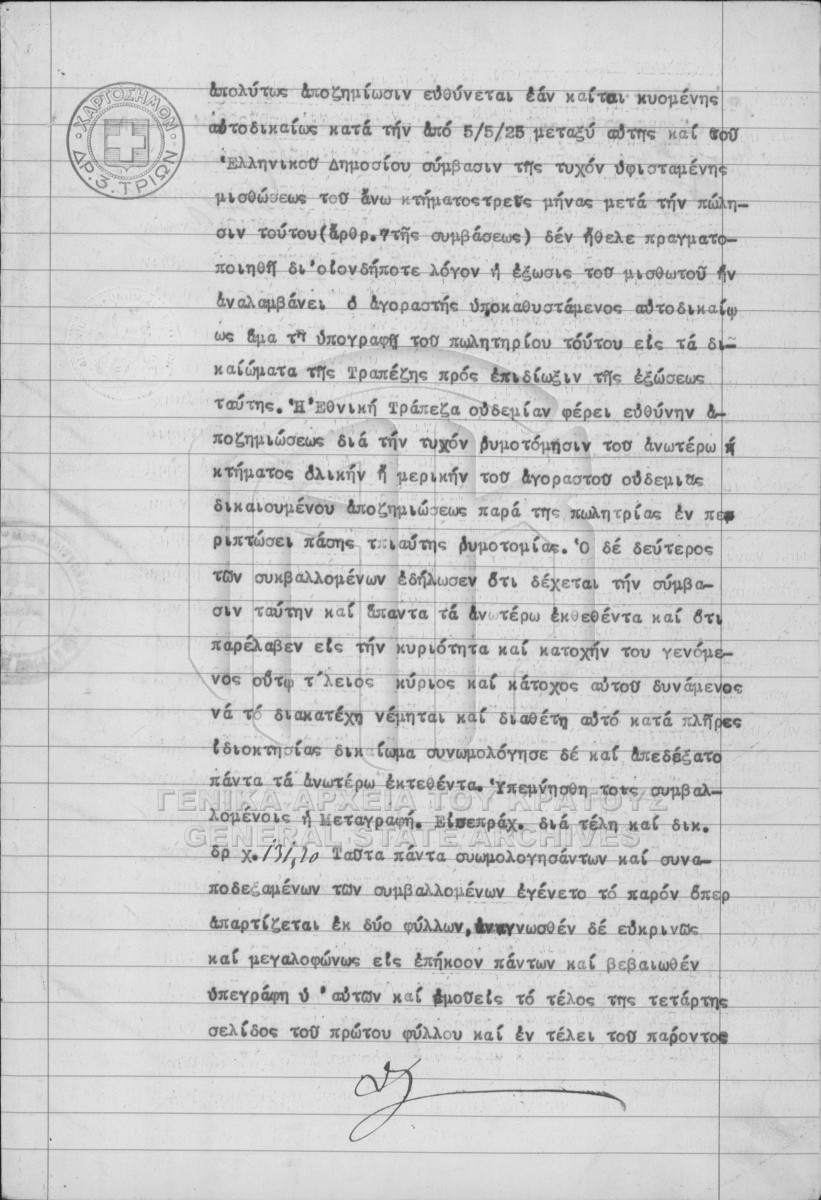 ΧΑΡΤΟΣΗΜΟΝ
ΔΡ. 3. ΤΡΙΩΝ
ἀπολύτως ἀποζημίωσιν εὐθύνεται ἐάν καίται κυομένης
αὐτοδικαίως κατά τήν ἀπό 5/5/25 μεταξύ αὐτης καί τοῦ
Ἑλληνικοῦ Δημοσίου σύμβασιν τῆς τυχόν ὑφισταμένης
μισθώσεως τοῦ ἄνω κτήματος τρεῖς μήνας μετά τήν πώλη-
σιν τούτου (ἄρθρ. 7 τῆς συμβάσεως) δέν ἤθελε πραγματο-
ποιηθῆ δι'οἱονδήποτε λόγον ἡ ἔξωσις τοῦ μισθωτοῦ ἥν
ἀναλαμβάνει ὁ ἀγοραστής ὑποκαθυστάμενος αὐτοδικαίῳ
ως ἅμα τῇ ὑπογραφῇ τοῦ πωλητηρίου τούτου εἰς τά δι-
καιώματα τῆς Τραπέζης πρός ἐπιδίωξιν τῆς ἐξώσεως
ταύτης. Ἡ Ἐθνική Τράπεζα οὐδεμίαν φέρει εὐθύνην ἀ-
ποζημιώσεως διά τήν τυχόν ρυμοτόμησιν τοῦ ἀνωτέρω ἤ
κτήματος ὁλικήν ἤ μερικήν τοῦ ἀγοραστοῦ οὐδεμιᾶς
δικαιουμένου ἀποζημιώσεως παρά της πωλητρίας ἐν πε
ριπτώσει πάσης τπιαύτης ρυμοτομίας. Ὁ δέ δεύτερος
τῶν συκβαλλομένων ἐδήλωσεν ὅτι δέχεται τήν σύμβα-
σιν ταύτην καί ἅπαντα τά ἀνωτέρω ἐκθεθέντα καί ὅτι
παρέλαβεν εἰς τήν κυριότητα καί κατοχήν του γενόμε-
νος οὕτω τ'λειος κύριος καί κάτοχος αὐτοῦ δυνάμενος
νά τό διακατέχη νέμηται καί διαθέτη αὐτό κατά πλῆρες
ἰδιοκτησίας δικαίωμα συνωμολόγησε δέ καί ἀπεδέξατο
πάντα τά ἀνωτέρω ἐκτεθέντα. Ὑπεμνήσθη τοις συμβαλ-
λομένοις ἡ Μεταγραφή. Εἰσεπράχ. διά τέλη καί δικ.
δρ χ. 131,20 Ταῦτα πάντα συωμολογησάντων καί συνα-
ποδεξαμένων τῶν συμβαλλομένων ἐγένετο τό παρόν ὅπερ
ἀπαρτίζεται ἐκ δύο φύλλων, ἀναγνωσθέν δέ εὐκρινῶς
καί μεγαλοφώνως εἰς ἐπήκοον πάντων καί βεβαιωθέν
ὑπεγράφη ὑ'αὐτῶν καί ἐμοῦεἰς τό τέλος της τετάρτης
σελίδος τοῦ πρώτου φύλλου καί ἐν τέλει τοῦ παρόντος
ΓΕΝΙΚΑ ΑΡΧΕΙΑ ΤΟΥ ΚΡΑΤΟΥΣ
GENERAL STATE ARCHIVES